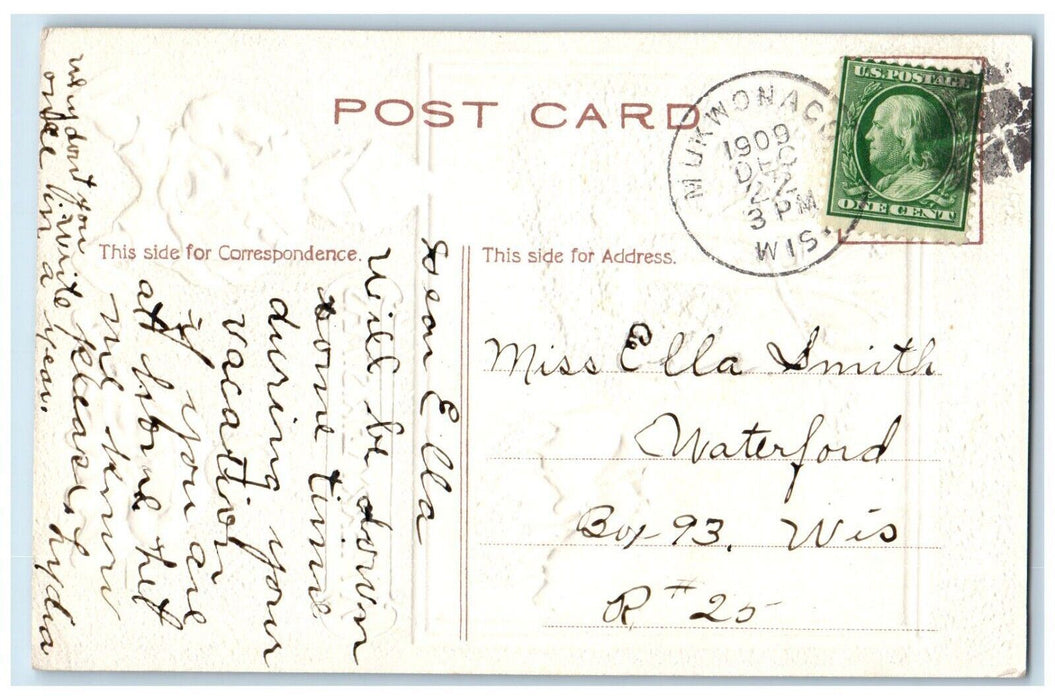 POST CARD
MUKWONAGO
1909
DEC
22
3 PM
WIS.
U.S. POSTAGE
ONE CENT
This side for Correspondence.
This side for Address.
Dear Ella
Will be down
some time
during your
vacation
if you are
at home let
me know
please, Lydia
why dont you write
once in a year.
Miss Ella Smith
Waterford
Box-93, Wis
R #25